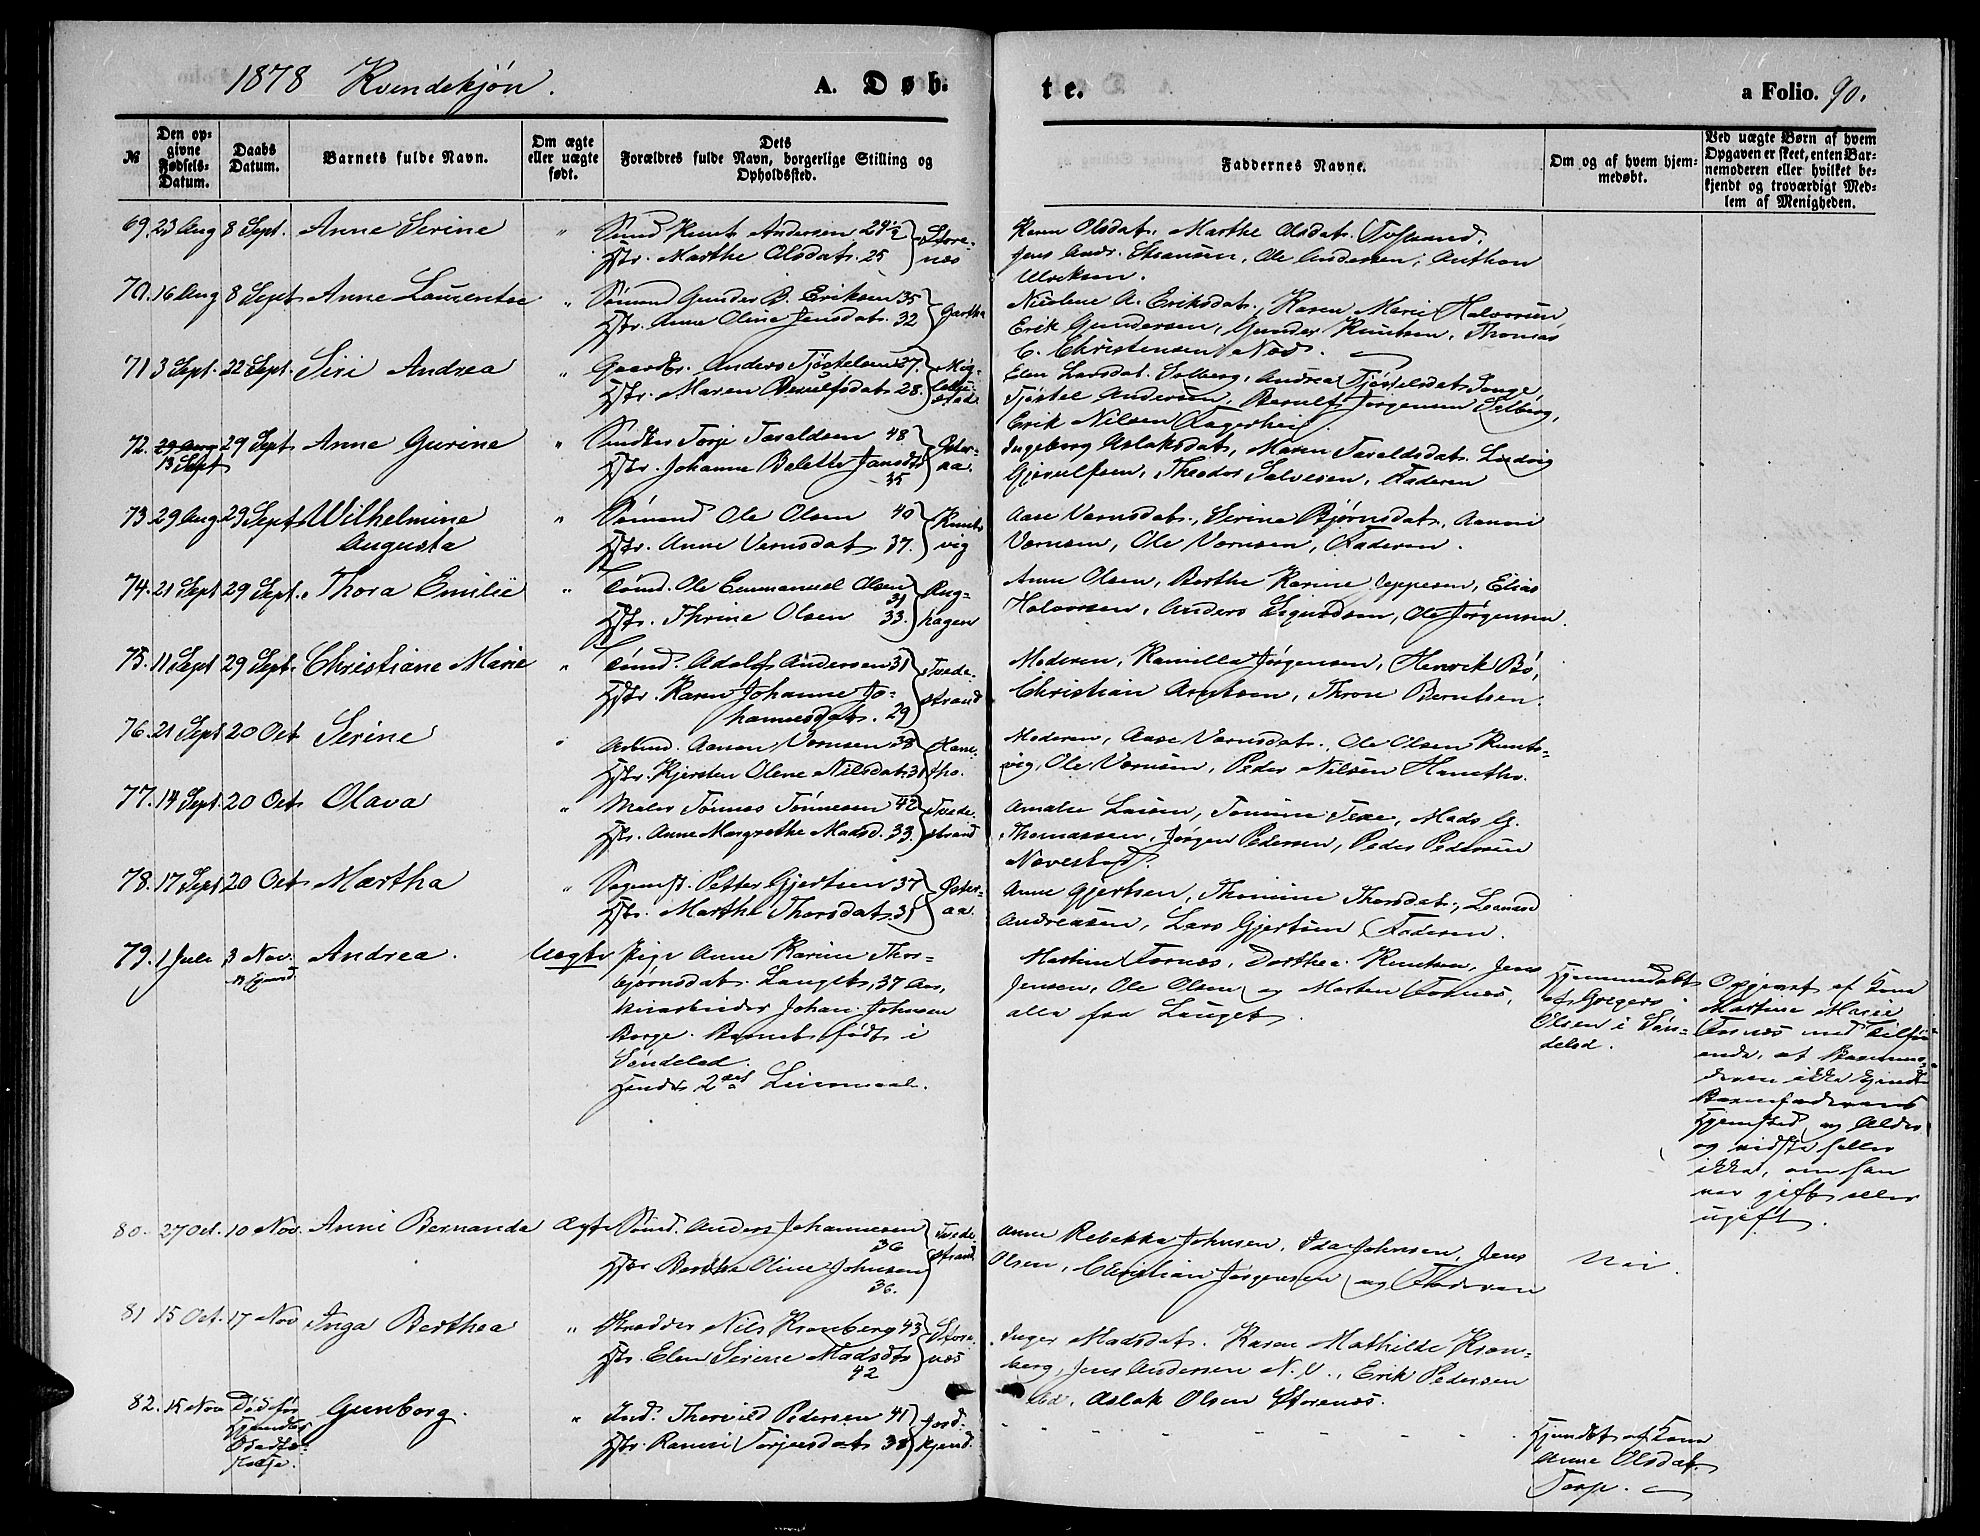 1878 Kvindekjøn. A. Døbte. a Folio. 90.
№
Den opgivne Fødsels-Datum.
Daabs Datum.
Barnets fulde Navn.
Om ægte eller uægte født.
Dets Forældres fulde Navn, borgerlige Stilling og Opholdssted.
Faddernes Navne.
Om og af hvem hjemmedøbt.
Ved uægte Børn af hvem Opgaven er skeet, enten Barnemoderen eller hvilket bekjendt og troværdigt Medlem af Menigheden.
69. 23 Aug 8 Sept. Anne Serine " Sømd Knut Andersen 24½ Store-
Hstr. Marthe Olsdatr. 25 næs
Karen Olsdatr. Marthe Olsdatr.
Jens Andr. Ole Andersen, Anthon
Ulriksen.
70. 16 Aug 8 Sept Anne Laurentze " Sømand Gunder B. Eriksen 35
Hstr. Anne Oline Jensdatr. 32 Gartha
Nicoline A. Eriksdatr., Karen Marie Halvorsen
Erik Gundersen, Gunder Knutsen, Thomas
C. Christensen Næs.
71 3 Sept. 22 Sept. Siri Andrea " Gaardbr. Anders Tjøstelsen 37.
Hstr. Maren Berulfsdatr. 28.
Elen Larsdat. Solberg, Andrea Tjøstelsdatr. Songe,
Tjøstel Andersen, Berulf Jørgensen Solberg,
Erik Nilsen Fagerhei
72. 29 Aug 29 Sept Anne Gurine " Smedker Torje Taraldsen 48 Øster-
13 Sept Hstr. Johanne Belette Jansdtr aa.
35
Ingeborg Aslaksdatr, Maren Taraldsdatr. Ludvig
Gjerulfsen, Theodor Salvesen, Faderen
73. 29 Aug 29 Sept Wilhelmine " Sømand Ole Olsen 40 Knuts
Augusta Hstr. Anne Vernsdatr. 37. vig
Aase Vernsdatr., Serine Bjørnsdatr, Aanon
Vernsen, Ole Vernsen, Faderen.
74. 21 Sept 29 Sept. Thora Emilie " Sømd. Ole Emmanuel Olsen
31
Hstr. Thrine Olsen 33. hagen
Anne Olsen, Berthe Karine Jeppesen, Elias
Halvorsen, Anders Sigurdsen, Ole Jørgensen.
75. 11 Sept 29 Sept. Christiane Marie " Sømd. Adolf Andersen 31 Tvede-
Hstr. Karen Johanne Jo- strand
hannesdatr. 29
Moderen, Kamilla Jørgensen, Henrik Bø,
Christian Arntsen, Thron Berntsen.
76. 21 Sept 20 Oct Serine " Arbmd. Aanon Vernsen 38 Hane-
Hstr. Kjersten Olene Nilsdatr 31 tho.
Moderen, Aase Vernsdatr. Ole Olsen Knuts-
vig, Ole Vernsen, Peder Nilsen Hanetho.
77. 14 Sept 20 Oct Olava " Maler Tønnes Tønnesen 42 Tvede-
Hstr. Anne Margrethe Madsd. 33. strand
Amalie Larsen, Tomine Mads G.
Thomassen, Jørgen Pedersen, Peder Pedersen
78. 17 Sept 20 Oct Martha " Petter Gjertsen 37 Øster-
Hstr. Marthe Thorsdatr 31 aa.
Anne Gjertsen, Thomine Thorsdatr, Leonard
Andreasen, Lars Gjertsen, Faderen.
79. 1 Juli 3 Nov. Andrea. Uægte Pige Anne Karine Thor-
bjørnsdatr. Langeb, 37 Aar,
Johan Johnsen
Borge. Barnet født i
Søndeled.
Hendes 2det Leiermaal.
Martine Fosnæs, Dorthea Knutsen, Jens
Jensen, Ole Olsen og Morten Fosnæs,
alle fra Langeb.
Hjemmedøbt
af Gregers
Olsen i Søn-
deled.
Opgivet af Kone
Martine Marie
Fosnæs med Tilføi
ende, at Barnemo-
deren ikke kjendte
Barnefaderens
Hjemsted og Alder
og vidste heller
ikke, om han
var gift eller
ugift.
80. 27 Oct. 10 Nov. Anne Bernanda Ægte Sømd. Anders Johannesen Tvede-
36 strand
Hstr. Berthe Oline Johnsen
36.
Anne Rebekka Johnsen, Ida Johnsen, Jens
Olsen, Christian Jørgensen og Faderen
Nei.
81 15 Oct. 17 Nov Inga Berthea " Skrædder Nils Kronberg 43 Store-
Hstr. Elen Serene Madsdtr næs
42
Inger Madsdatr. Karen Mathilde Kron-
berg, Jens Andersen N.V., Erik Pedersen
Aslak Olsen Storenæs.
82. 15 Nov Død før Gunborg. " Ind. Thorvild Pedersen 41
Hjemdøb Hstr. Torjusdatr 38
Stadfæ-
stelse.
Hjemdøbt af Kone
Anne Olsdat.
Torp.